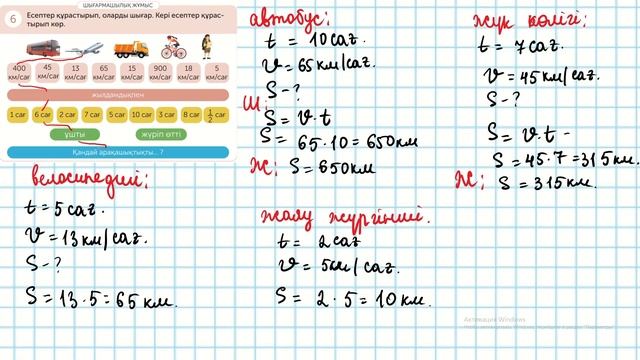 ШЫҒАРМАШЫЛЫҚ ЖҰМЫС
6 Есептер құрастырып, оларды шығар. Кері есептер құрас-
тырып көр.
400 км/сағ 45 км/сағ 13 км/сағ 65 км/сағ 15 км/сағ 900 км/сағ 18 км/сағ 5 км/сағ
жылдамдықпен
1 сағ 6 сағ 2 сағ 7 сағ 5 сағ 10 сағ 3 сағ 8 сағ 1/2 сағ
ұшты жүріп өтті
Қандай арақашықтықты... ?
автобус:
t = 10 сағ.
V = 65 км/сағ.
S - ?
Ш:
S = V · t
S = 65 · 10 = 650 км
Ж: S = 650 км
жүк көлігі:
t = 7 сағ.
V = 45 км/сағ.
S - ?
S = V · t -
S = 45 · 7 = 315 км.
Ж: S = 315 км.
велосипедші:
t = 5 сағ.
V = 13 км/сағ.
S - ?
S = 13 · 5 = 65 км.
жаяу жүргінші.
t = 2 сағ
V = 5 км/сағ.
S = 2 · 5 = 10 км.
Активация Windows